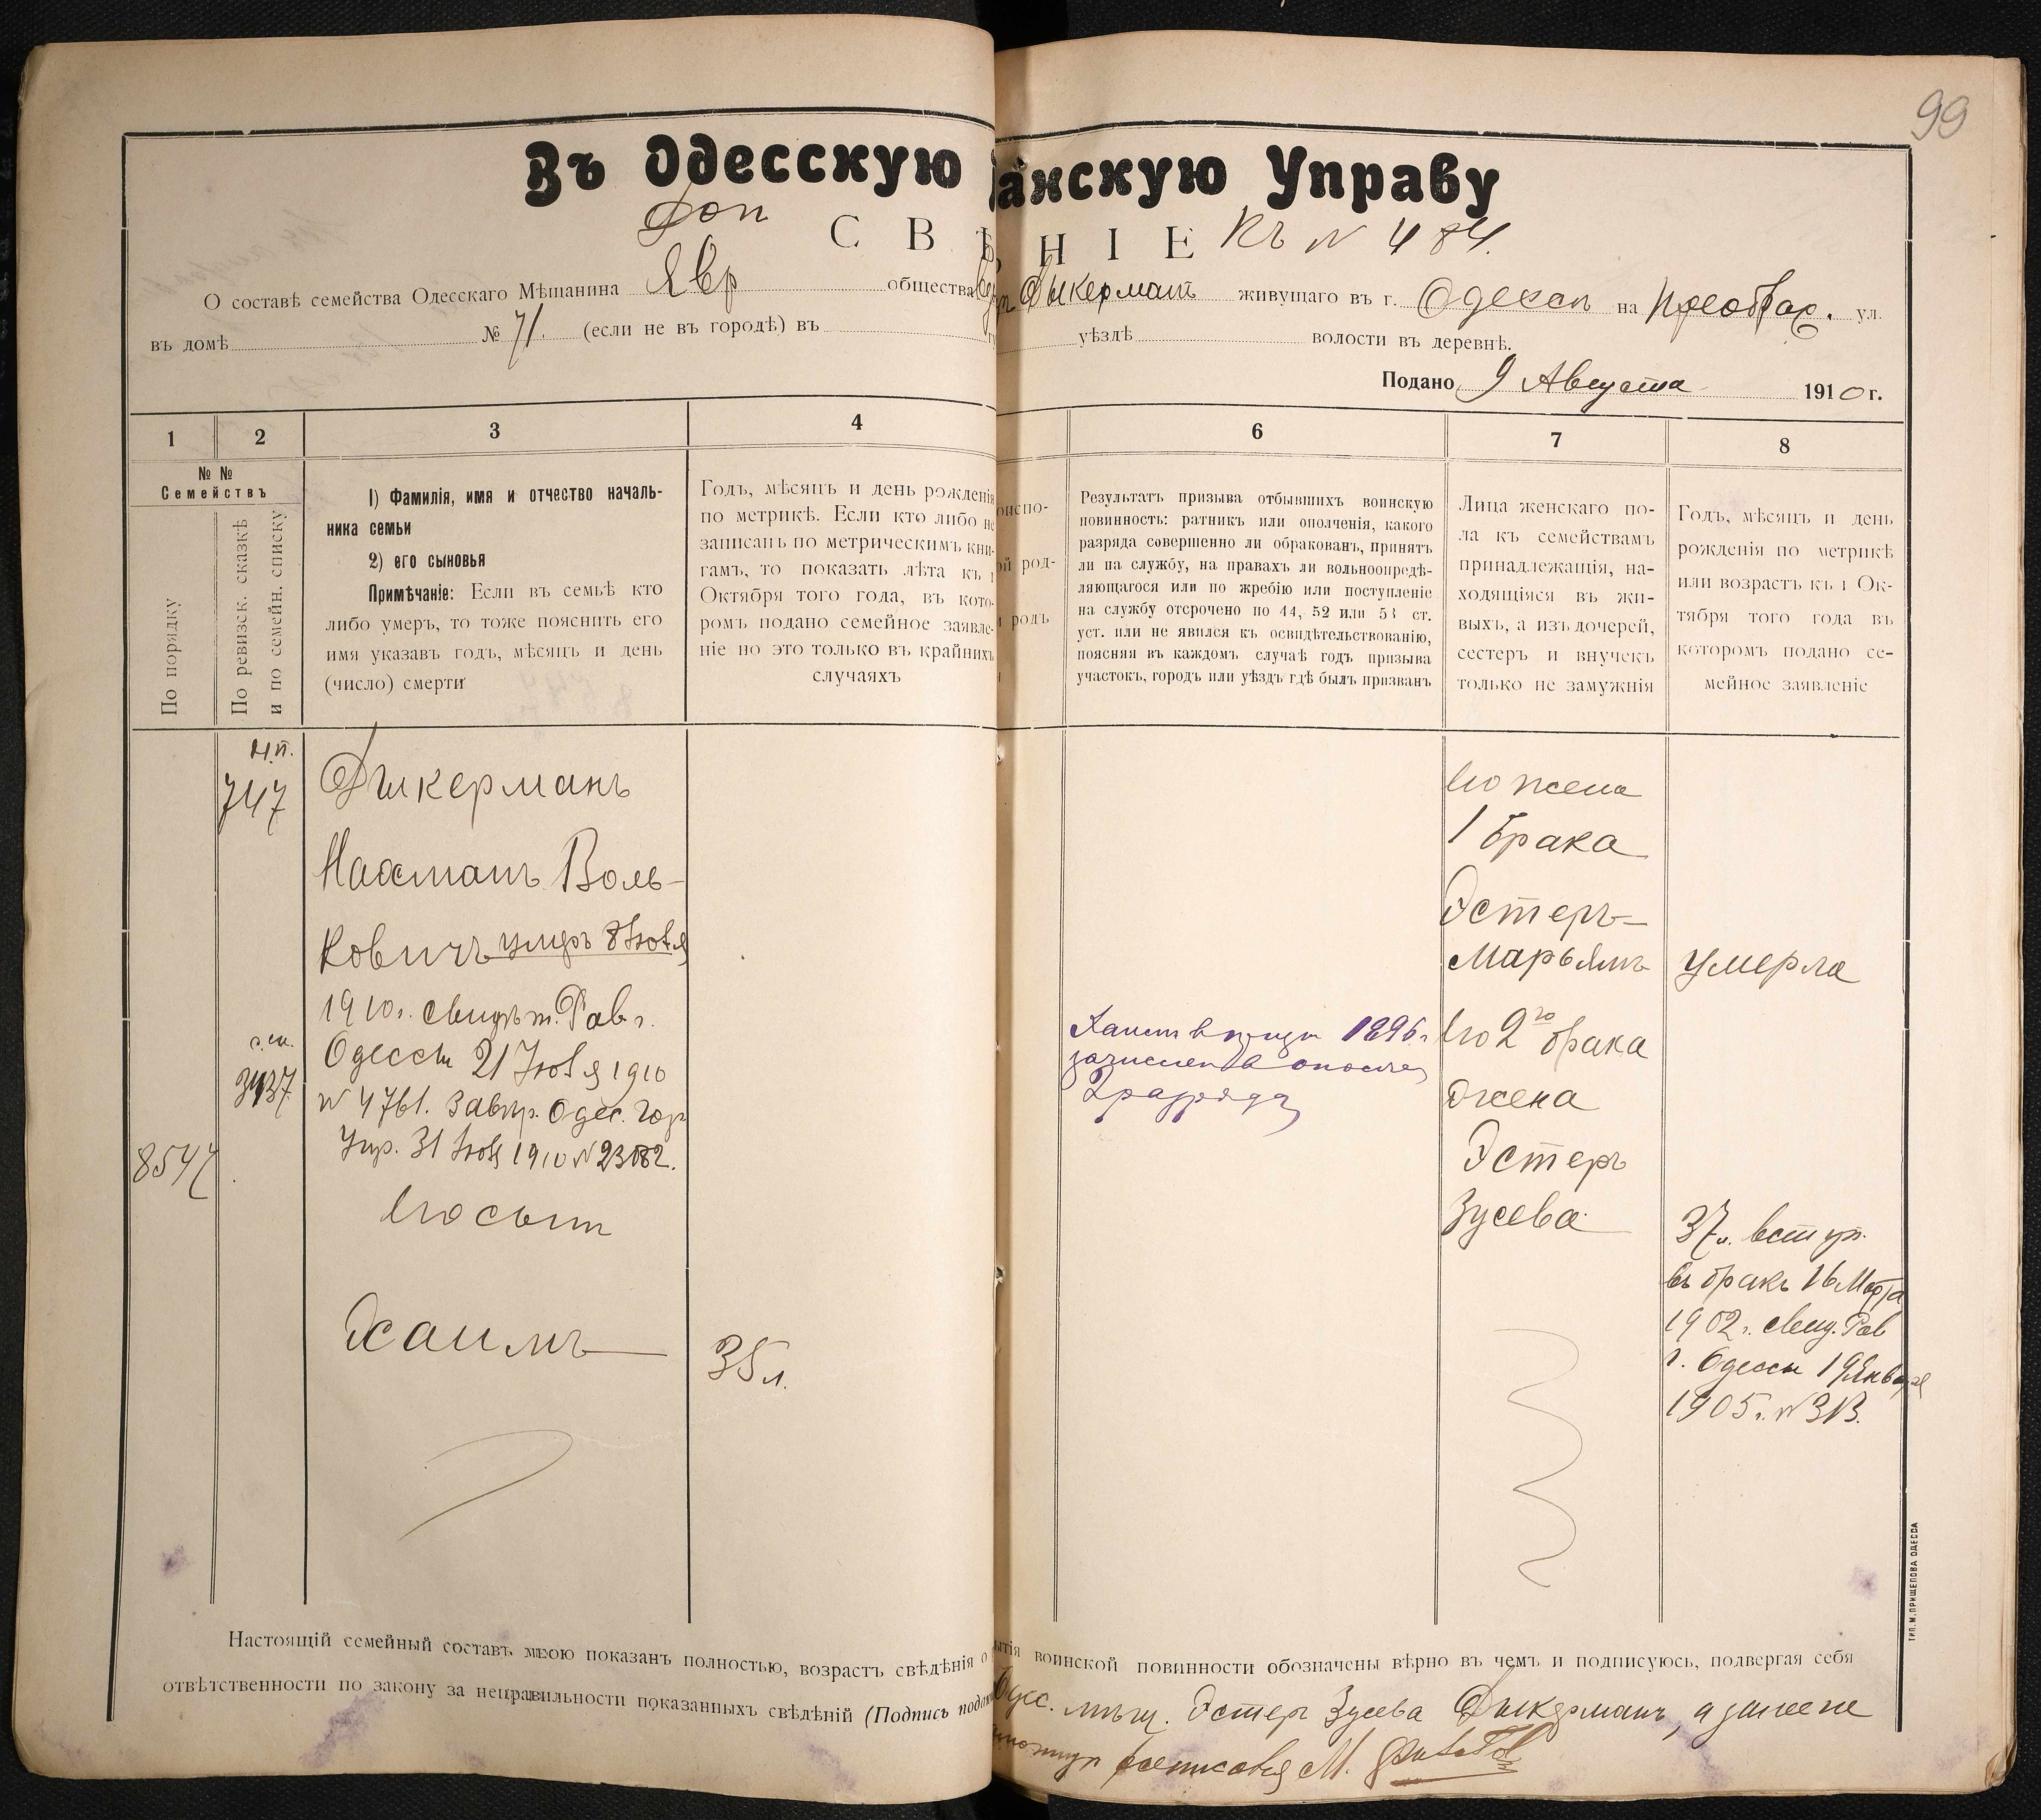 99
Въ Одесскую анскую Управу
Доп
СВѢ НІЕ Къ № 484.
О составѣ семейства Одесскаго Мѣщанина Явр общества Дыкерманъ живущаго въ г. Одессѣ на Преображ. ул.
въ домѣ № 71. (если не въ городѣ) въ уѣздѣ волости въ деревнѣ.
Подано 9 Августа 1910 г.
1 2 3 4 6 7 8
№ №
Семействъ
По порядку
По ревизск. сказкѣ
и по семейн. списку
1) Фамилія, имя и отчество началь-
ника семьи
2) его сыновья
Примѣчаніе: Если въ семьѣ кто
либо умеръ, то тоже пояснить его
имя указавъ годъ, мѣсяцъ и день
(число) смерти
Годъ, мѣсяцъ и день рожденія
по метрикѣ. Если кто либо не
записанъ по метрическимъ кни-
гамъ, то показать лѣта къ 1
Октября того года, въ кото-
ромъ подано семейное заявле-
ніе но это только въ крайнихъ
случаяхъ
оиспо-
ой род-
и родъ
Результатъ призыва отбывшихъ воинскую
повинность: ратникъ или ополченія, какого
разряда совершенно ли обракованъ, принятъ
ли на службу, на правахъ ли вольноопредѣ-
ляющагося или по жребію или поступленіе
на службу отсрочено по 44, 52 или 53 ст.
уст. или не явился къ освидѣтельствованію,
поясняя въ каждомъ случаѣ годъ призыва
участокъ, городъ или уѣздъ гдѣ былъ призванъ
Лица женскаго по-
ла къ семействамъ
принадлежащія, на-
ходящіяся въ жи-
выхъ, а изъ дочерей,
сестеръ и внучекъ
только не замужнія
Годъ, мѣсяцъ и день
рожденія по метрикѣ
или возрастъ къ 1 Ок-
тября того года въ
которомъ подано се-
мейное заявленіе
н.п.
747
с.сп.
3437
8547
Дыкерманъ
Нахманъ Воль-
ковичъ умеръ 8 Іюля
1910 г. свидѣт. Рав. г.
Одессы 21 Іюля 1910
№ 4761. Завѣр. Одес. Гор.
Упр. 31 Іюля 1910 № 23082.
Его сынъ
Хаимъ
35 л.
Хаимъ въ 1896 г.
зачисленъ въ ополч.
2 разряда
Его жена
1 брака
Эстеръ-
Марьямъ
умерла
Его 2го брака
жена
Эстеръ
Зусева
37 л. вступ.
въ бракъ 16 Марта
1902 г. свид. Рав
г. Одессы 19 Января
1905 г. № 313.
Настоящій семейный составъ мною показанъ полностью, возрастъ свѣдѣнія о ытія воинской повинности обозначены вѣрно въ чемъ и подписуюсь, подвергая себя
отвѣтственности по закону за неправильности показанныхъ свѣдѣній (Подпись
Одес. мѣщ. Эстеръ Зусева Дыкерманъ, а за нее не
росписался М.
ТИП. М. ПРИЩЕПОВА ОДЕССА